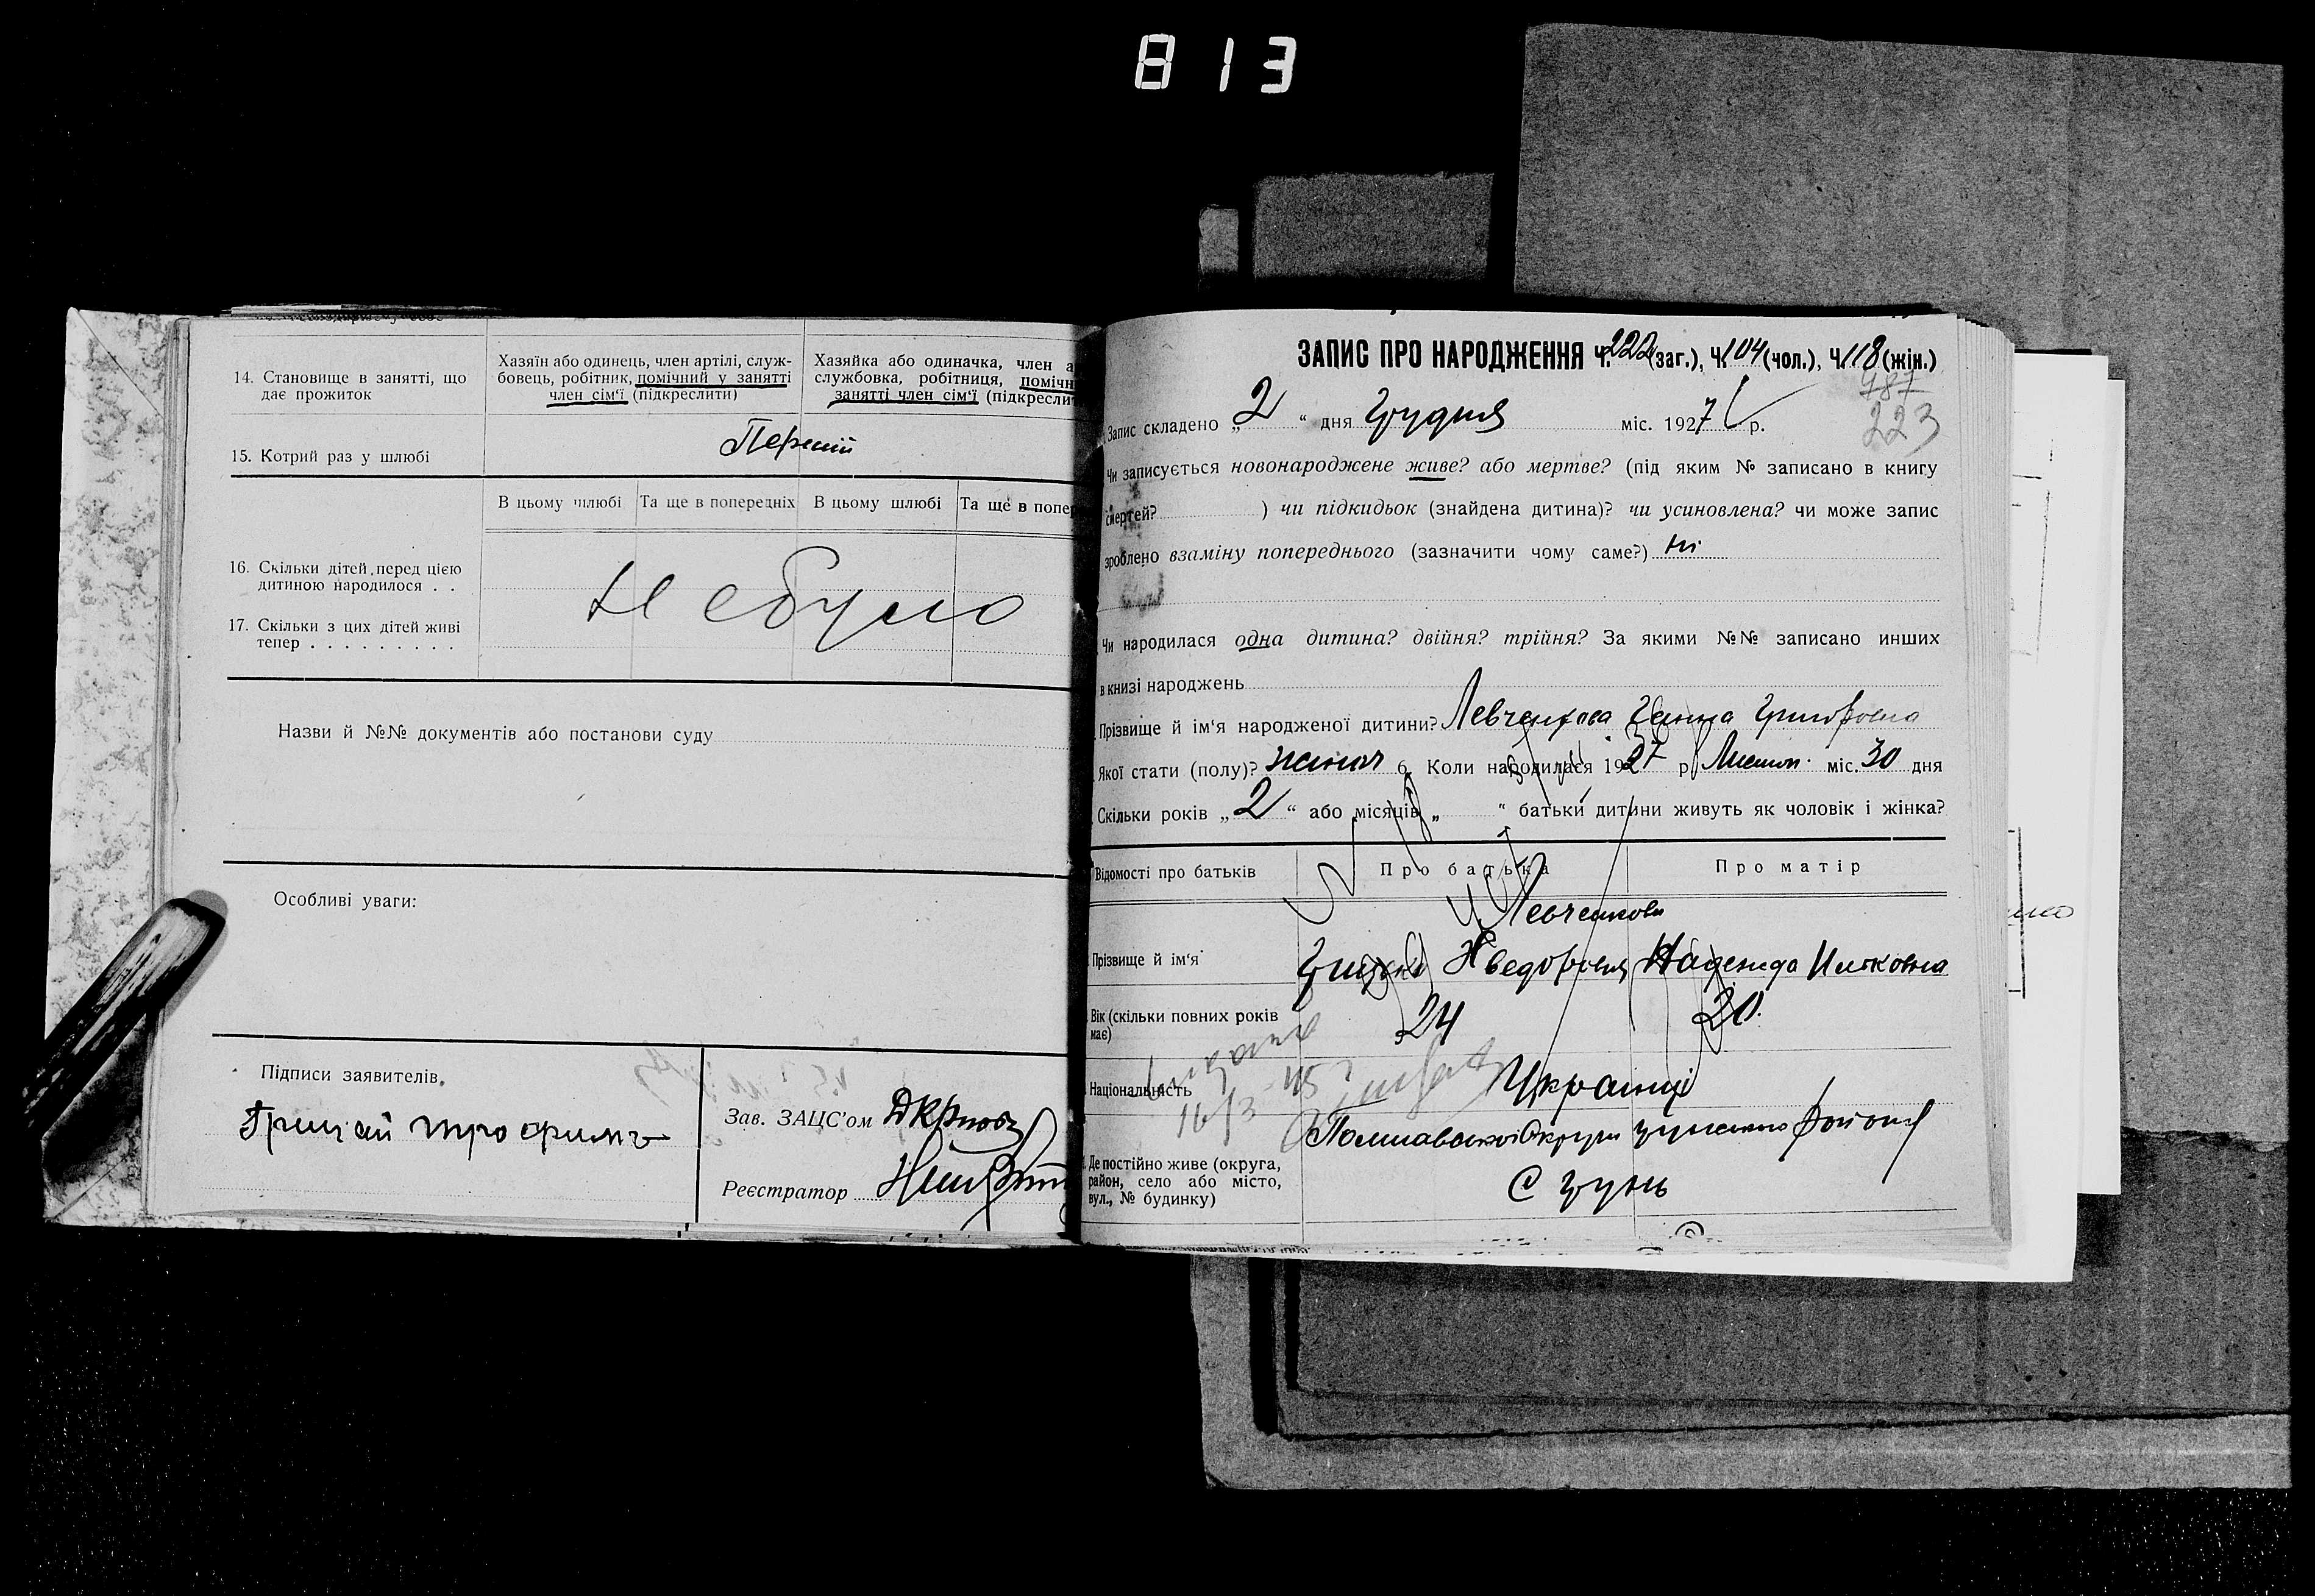 813
14. Становище в занятті, що дає прожиток
Хазяїн або одинець, член артілі, служ-
бовець, робітник, помічний у занятті
член сім'ї (підкреслити)
Хазяйка або одиначка, член а
службовка, робітниця, помічн
занятті член сім'ї (підкреслит
15. Котрий раз у шлюбі
Перший
В цьому шлюбі Та ще в попередніх В цьому шлюбі Та ще в попер
16. Скільки дітей перед цією
дитиною народилося . .
Не було
17. Скільки з цих дітей живі
тепер . . . . . . . . .
Назви й №№ документів або постанови суду
Особливі уваги:
Підписи заявителів.
Грицай
Зав. ЗАЦС'ом
Реєстратор
ЗАПИС ПРО НАРОДЖЕННЯ Ч. 222 (заг.), Ч. 104 (чол.), Ч. 118 (жін.)
487
223
Запис складено „ 2 “ дня Грудня міс. 1927 р.
Чи записується новонароджене живе? або мертве? (під яким № записано в книгу
смертей? ) чи підкидьок (знайдена дитина)? чи усиновлена? чи може запис
зроблено взаміну попереднього (зазначити чому саме?) ні
Чи народилася одна дитина? двійня? трійня? За якими №№ записано инших
в книзі народжень
Прізвище й ім'я народженої дитини? Левченкова Ганна Григоровна
Якої стати (полу)? жіноч 6. Коли народилася 1927 р. Листоп. міс. 30 дня
Скільки років „ 2 “ або місяців „ “ батьки дитини живуть як чоловік і жінка?
Відомості про батьків
Про батька
Про матір
Левченкови
Прізвище й ім'я
Надежда
Вік (скільки повних років
має)
24
20.
Національність
Українці
16/3 45
Де постійно живе (округа,
район, село або місто,
вул., № будинку)
Полтавської Округи Грунського району
С Грунь